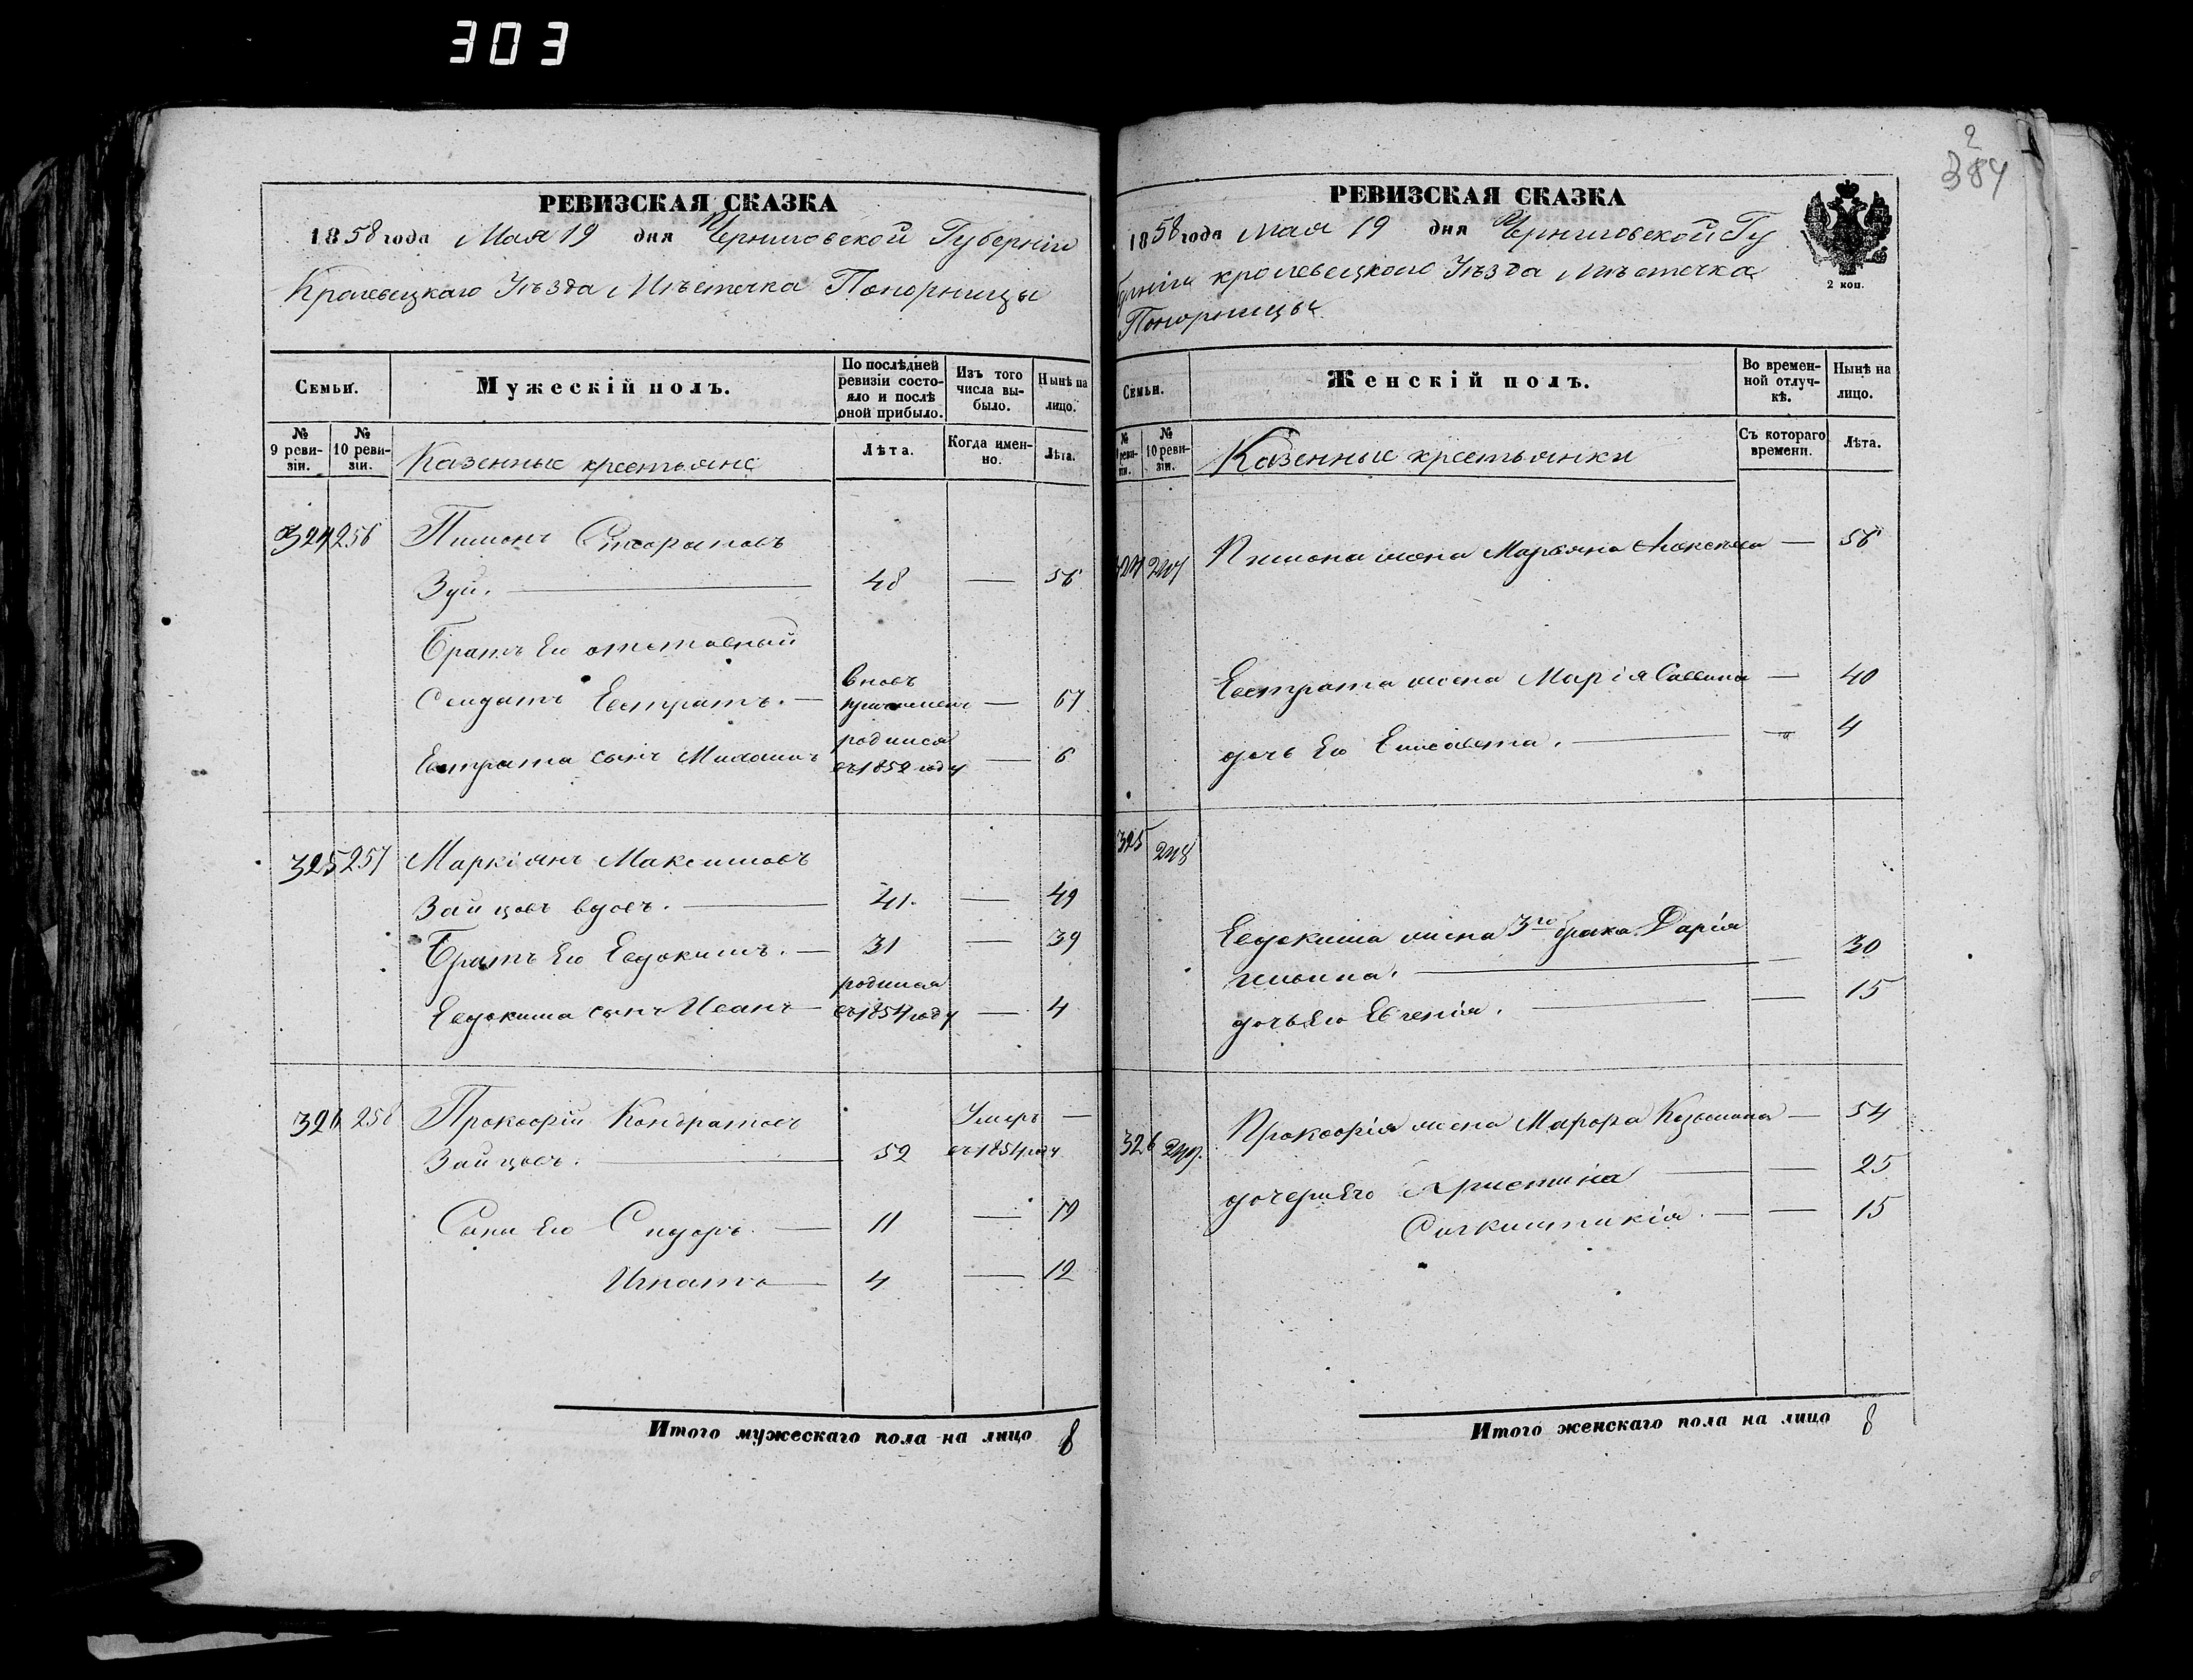 303
РЕВИЗСКАЯ СКАЗКА
1858 года Мая 19 дня Черниговской Губерніи
Кролевецкаго Уѣзда Мѣстечка Понорницы
Семьи.
Мужескій полъ.
По послѣдней ревизіи состояло и послѣ оной прибыло.
Изъ того числа выбыло.
Нынѣ на лицо.
№ 9 ревизіи.
№ 10 ревизіи.
Казенные крестьяне
Лѣта.
Когда именно.
Лѣта.
324 256 Пимонъ
Зуй. 48 — 56
Братъ его отставный
Солдатъ Евстратъ. — вновь причисленъ — 67
Евстрата сынъ родился въ 1852 году — 6
325 257 Маркіянъ Максимовъ
Зайцовъ вдовъ. 41. — 49
Братъ его Евдокимъ. — 31 — 39
Евдокима сынъ Иванъ — родился въ 1854 году — 4
326 258 Прокофій Кондратовъ Умеръ —
Зайцовъ. 52 въ 1854 году
Сыны его Сидоръ. — 11 — 19
Игнатъ — 4 — 12
Итого мужескаго пола на лицо 8
2
384
РЕВИЗСКАЯ СКАЗКА
1858 года Мая 19 дня Черниговской Гу
берніи кролевецкаго Уѣзда Мѣстечка
Понорницы
2 коп.
Семьи.
Женскій полъ.
Во временной отлучкѣ.
Нынѣ на лицо.
№ 9 ревизіи.
№ 10 ревизіи.
Казенные крестьянки
Съ котораго времени.
Лѣта.
324 247 Пимона жена Марьяна Алексѣева — 56
Евстрата жена Марія Саввина — 40
дочь его Елисавета. — 4
325 248
Евдокима жена 3го брака Дарія
Ильина. — 30
дочь его Евгенія. — 15
326 249. Прокофія жена Марфа Козьмина — 54
дочери его Христина — 25
15
Итого женскаго пола на лицо 8